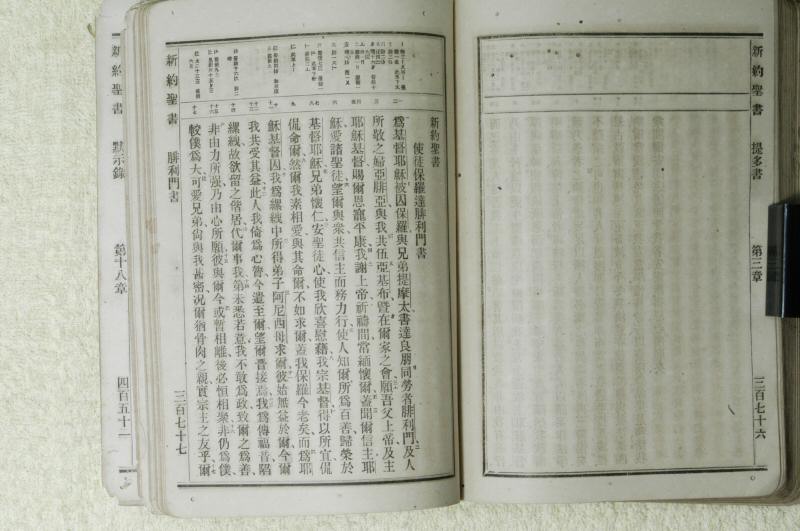 新約聖書 提多書 第三章 三百七十六
新約聖書
使徒保羅達腓利門書
爲基督耶穌被囚保羅與兄弟提摩太書達良朋同勞者腓利門及人
所敬之婦亞腓亞與我共伍亞基布暨在爾家之會願吾父上帝及主
耶穌基督賜爾恩寵平康我謝上帝祈禱間常緬懷爾蓋聞爾信主耶
穌愛諸聖徒望爾與衆共信主而務力行使人知爾所爲百善歸榮於
基督耶穌兄弟懷仁安聖徒心使我欣喜慰藉我宗基督得以所宜侃
侃命爾然爾我素相愛與其命爾不如求爾蓋我保羅今老矣而爲耶
穌基督囚我爲縲絏中所得弟子阿尼西母求爾彼始無益於爾今爾
我共受其益此人我倚爲心膂今遣至爾望爾晉接焉我爲傳福音陷
縲絏故欲留之偕居代爾事我第未悉若意我不敢爲政致爾之爲善
非由力所强乃由心所願彼與爾今或暫相離後必恒相聚非仍爲僕
較僕爲大可愛兄弟尙與我甚密况爾猶骨肉之親實宗主之友乎爾
新約聖書 腓利門書 三百七十七
新約聖書 默示錄 第十八章 四百五十一